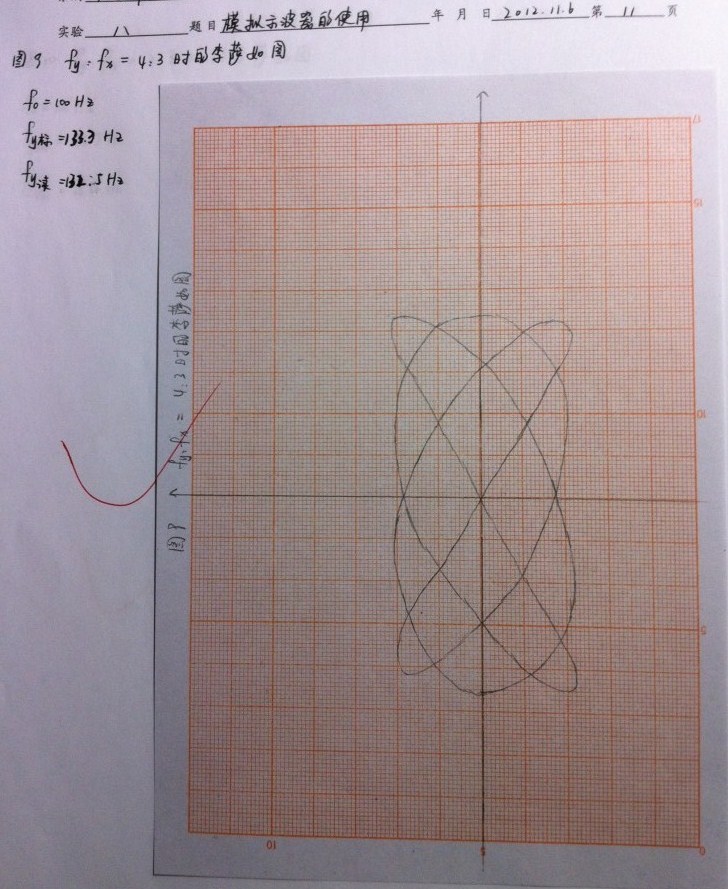 实验 八 题目 模拟示波器的使用 年 月 日 2012.11.6 第 11 页
图9 fy:fx = 4:3 时的李萨如图
f0 = 100 Hz
fy标 = 133.3 Hz
fy读 = 132.5 Hz
图9 fy:fx = 4:3 时的李萨如图
17
15
10
5
10
5
0